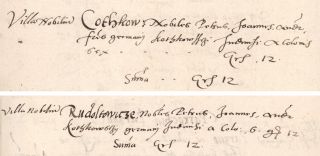 Villa Nobilium Cothkow, Nobiles Petrus, Joannes, Andr.
fres germani Kothkowssy Judinissi a Colonis
sex
Grs 12
Suma .. Grs 12
Villa Nobilium Rudoltowicze, Nobiles Petrus, Joannes, Andr.
Kothkowssy germani a Colo. 6. gs 12
Suma Grs 12